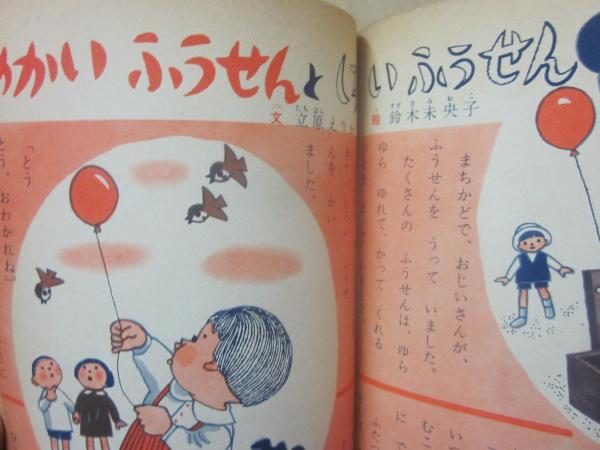 かい ふうせんと
い ふうせん
文 立原えりか
絵 鈴木未央子
まちかどで、おじいさんが、
ふうせんを うって いました。
たくさんの ふうせんは、ゆら
ゆら ゆれて、かって くれる
えんを かい
ました。
「とう
とう、おわかれね」